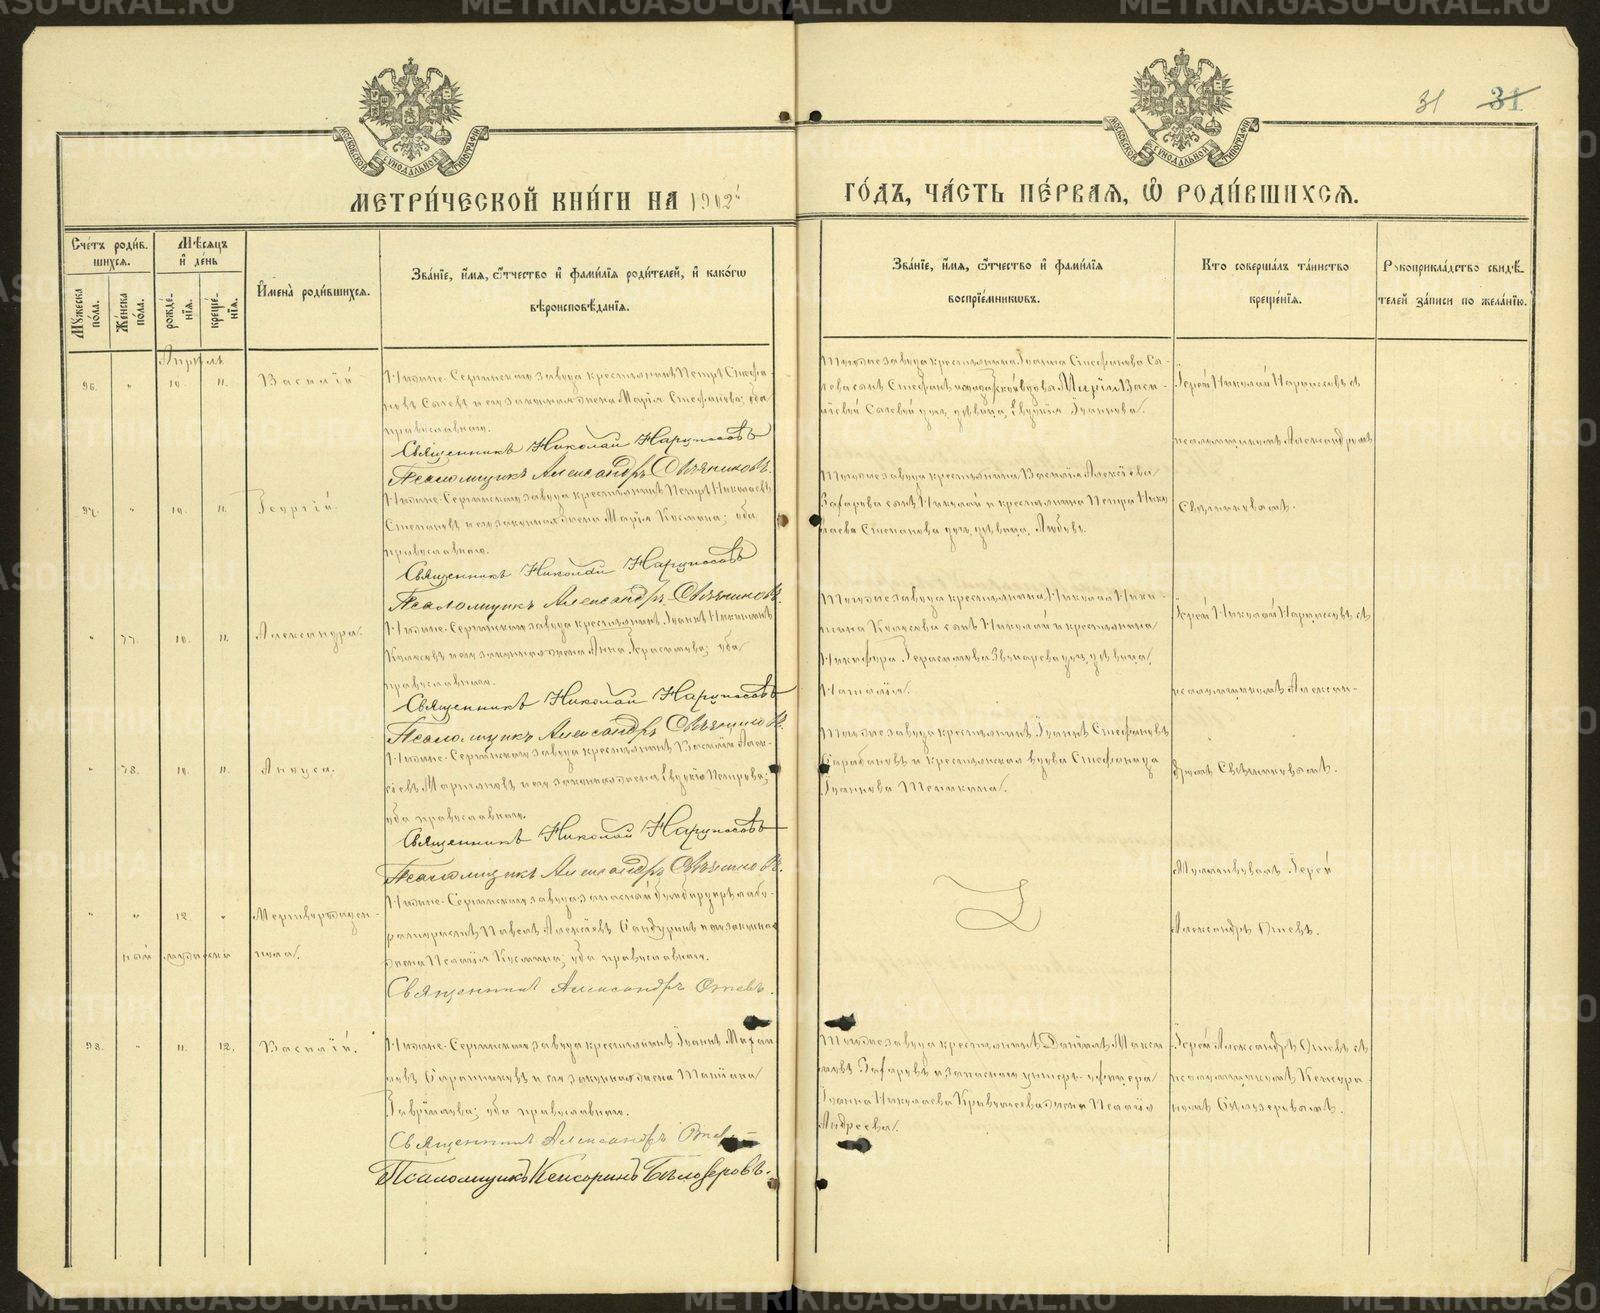 31 31
МЕТРИ́ЧЕСКОЙ КНИ́ГИ НА 1902
ГО́ДЪ, ЧА́СТЬ ПЕ́РВАЯ, Ѽ РОДИ́ВШИХСЯ.
Сче́тъ роди́в-
шихся.
Му́жеска по́ла.
Же́нска по́ла.
Мѣ́сяцъ
и҆ де́нь
рожде́-
нїя.
креще́-
нїя.
И҆мена̀ роди́вшихся.
Зва́нїе, и҆́мя, ѻ҆́тчество и҆ фами́лїя роди́телей, и҆ како́гѡ
вѣроисповѣ́данїя.
Зва́нїе, и҆́мя, ѻ҆́тчество и҆ фами́лїя
воспрїе́мникѡвъ.
Кто̀ соверша́лъ та́инство
креще́нїя.
Рꙋкоприкла́дство свидѣ́-
телей за́писи по жела́нїю.
Апрѣль
96. " 10. 11. Василій
Нижне-Сергинскаго завода крестьянинъ Петръ Стефа-
новъ Салевъ и его законная жена Марія Стефанова; оба
православные.
Священникъ Николай Нарциссовъ
Псаломщикъ Александръ Свѣчниковъ.
Іерей Николай Нарциссовъ съ
псаломщикомъ Александромъ
Свѣчниковымъ.
97. " 10. 11. Георгій
Нижне-Сергинскаго завода крестьянинъ Петръ Николаевъ
Степановъ и его законная жена Марія Косьмина; оба
православные.
Священникъ Николай Нарциссовъ
Псаломщикъ Александръ Свѣчниковъ.
Тогоже завода крестьянина Василія Алексіева
Захарова сынъ Николай и крестьянина Петра Нико-
лаева Степанова дочь дѣвица Любовь.
" 77. 10. 11. Александра.
Нижне-Сергинскаго завода крестьянинъ Іоаннъ Никитинъ
и его законная жена Анна Герасимова; оба
православные.
Священникъ Николай Нарциссовъ
Псаломщикъ Александръ Свѣчниковъ.
Тогоже завода крестьянина Николая Ники-
тина сынъ Николай и крестьянина
Никифора Герасимова дочь дѣвица
Наталія.
Іерей Николай Нарциссовъ съ
псаломщикомъ Алексан-
дромъ Свѣчниковымъ.
" 78. 10. 11. Анфуса.
Нижне-Сергинскаго завода крестьянинъ Василій Алек-
сіевъ Мартыновъ и его законная жена Евдокія Петрова;
оба православные.
Священникъ Николай Нарциссовъ
Псаломщикъ Александръ Свѣчниковъ.
Тогоже завода крестьянинъ Іоаннъ Стефановъ
Барабановъ и крестьянская вдова Стефанида
Іоаннова
" " 12. " Мертворожден-
ный мужеска пола.
Нижне-Сергинскаго завода запасный бомбардиръ лабо-
ратористъ Павелъ Алексіевъ Бондуринъ и его законная
жена Пелагія Косьмина; оба православные.
Священникъ Александръ Отевъ.
Молитвовалъ Іерей
Александръ Отевъ.
98. " 11. 12. Василій.
Нижне-Сергинскаго завода крестьянинъ Іоаннъ Михаи-
ловъ и его законная жена Татіана
Гавріилова; оба православные.
Священникъ Александръ Отевъ
Псаломщикъ Кенсоринъ Бѣлозеровъ.
Тогоже завода крестьянинъ Даніилъ Макси-
мовъ Захаровъ и запаснаго унтеръ-офицера
Іоанна Николаева жена Пелагія
Андреева.
Іерей Александръ Отевъ съ
псаломщикомъ Кенсори-
номъ Бѣлозеровымъ.
METRIKI.GASO-URAL.RU